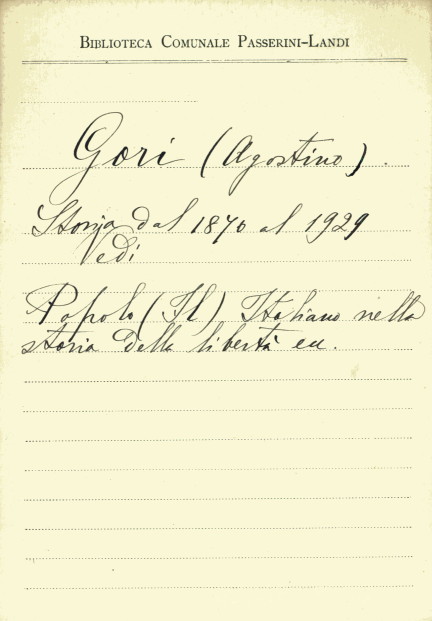 BIBLIOTECA COMUNALE PASSERINI-LANDI
Gori (Agostino).
Storia dal 1870 al 1929
Vedi
Popolo (Il) Italiano nella
storia della libertà eu.